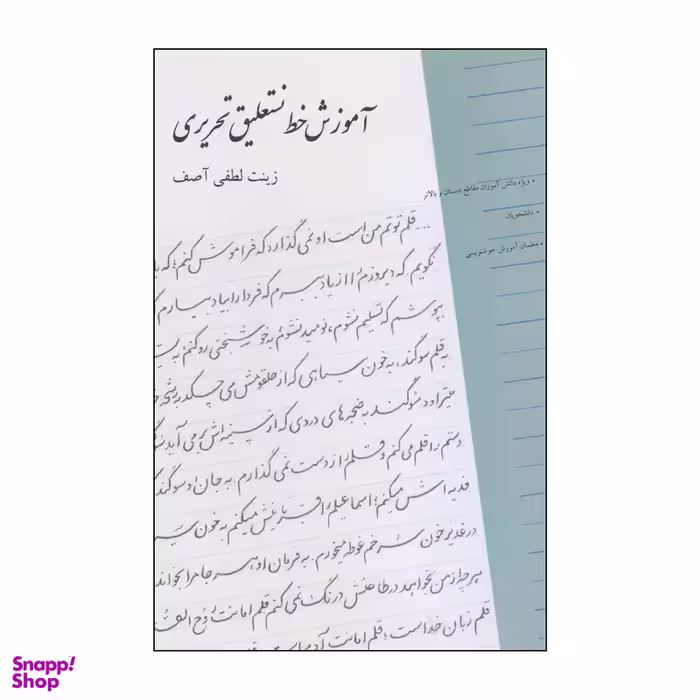 آموزش خط نستعلیق تحریری
زینت لطفی آصف
• ویژه دانش آموزان مقاطع دبستان و بالاتر
• دانشجویان
• معلمان آموزش خوشنویسی
... قلم توتم من است او نمی گذارد که فراموش کنم؛ که با
نگویم. که دیروزم را از یاد ببرم که فردا را بیاد بیارم
بپوشم که تسلیم نشوم، نومید نشوم به خوشبختی رو کنم
به قلم سوگند، به خون سیاهی که از حلقومش می چکد
میتراود سوگند به ضجه های دردی که از سینه اش بر می آید
دستم را قلم می کنم و قلم را از دست نمی گذارم. به جان او سوگند که
فدیه اش میکنم؛ اسماعیلم را قربانیش میکنم به خون
در غدیر خون سرخم غوطه میخورم. به فرمان او هر جا مرا بخواند
هر چه از من بخواهد در طاعتش درنگ نمی کنم قلم امانت روح القد
قلم زبان خداست؛ قلم امانت آدم است
Snapp!
Shop